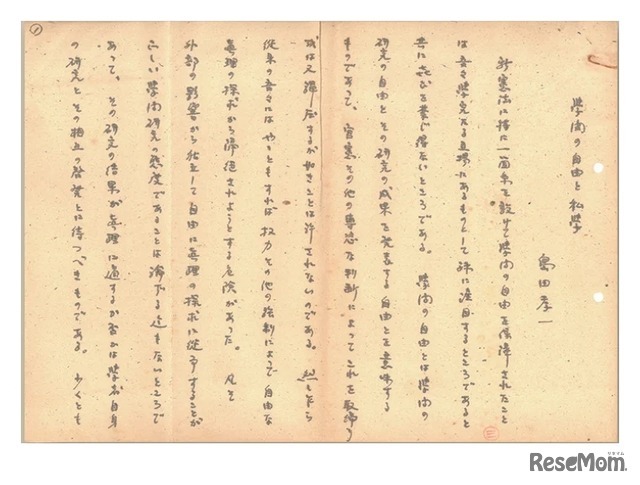 ①
学問の自由と私学
島田孝一
新憲法に特に一箇条を設けて学問の自由を保障されたこと
は吾々学究たる立場にあるものとして殊に注目するところであると
共に喜びを禁じ得ないところである。 学問の自由とは学問の
研究の自由とその研究の成果を発表する自由とを意味する
ものであって、官憲その他の専恣な判断によってこれを取締り
或は又弾圧するが如きことは許されないのである。 然し乍ら
従来の吾々にはややともすれば权力その他の強制によって自由な
真理の探求から歸退されようとする危険があった。 凡そ
外部の影響から独立して自由に真理の探求に従事することが
正しい学問研究の態度であることは論ずる迄もないところで
あって、その研究の結果が真理に適するか否かは学者自身
の研究とその独立の啓発とに待つべきものである。 少くとも
三
リセマム
ReseMom.